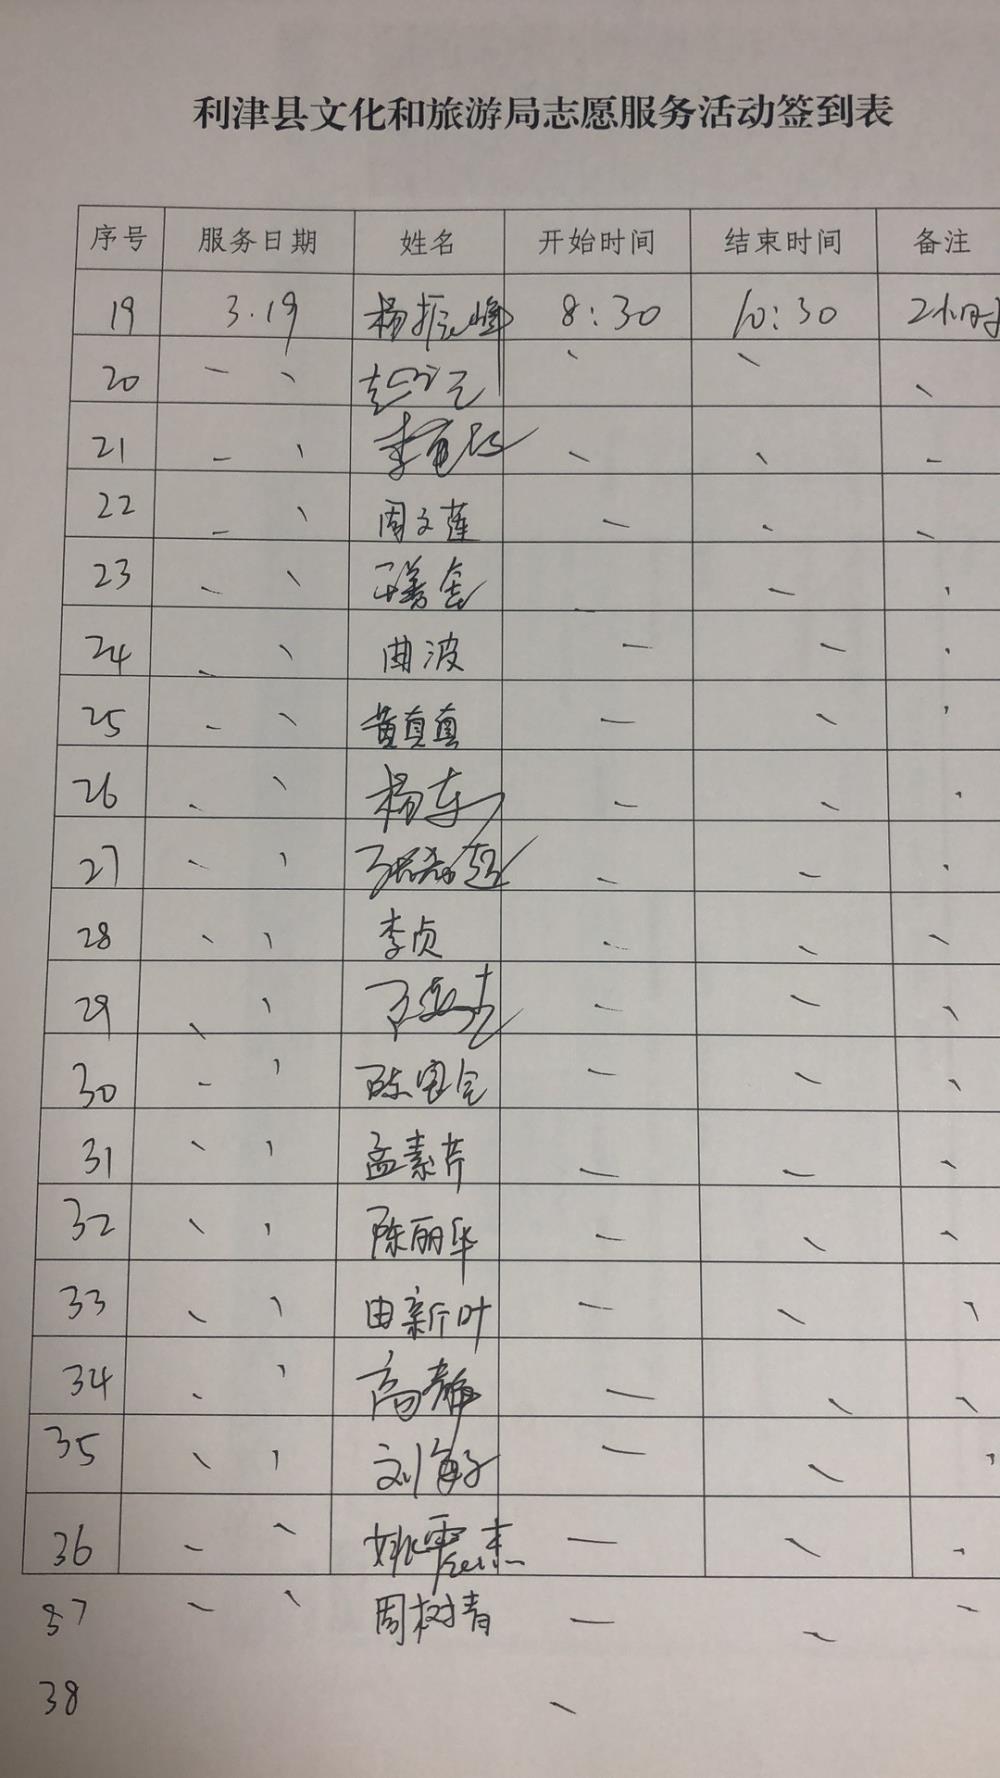 利津县文化和旅游局志愿服务活动签到表
序号 服务日期 姓名 开始时间 结束时间 备注
19 3.19 杨振峰 8:30 10:30 2小时
20
21 李
22 周文莲
23
24 曲波
25 黄真真
26 杨东
27 张
28 李贞
29
30 陈宝
31 孟素芹
32 陈丽华
33 由新叶
34 高静
35 刘
36 姚霞杰
37 周树青
38